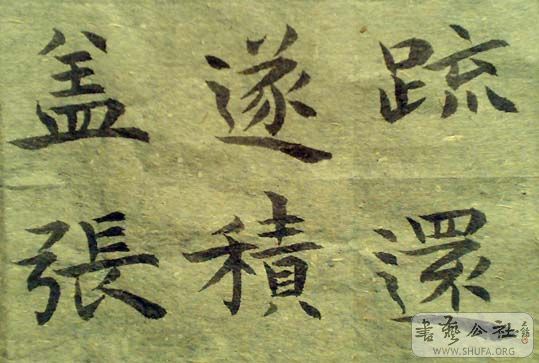 䟽還
遂積
盖張
書藝公社
WWW.SHUFA.ORG